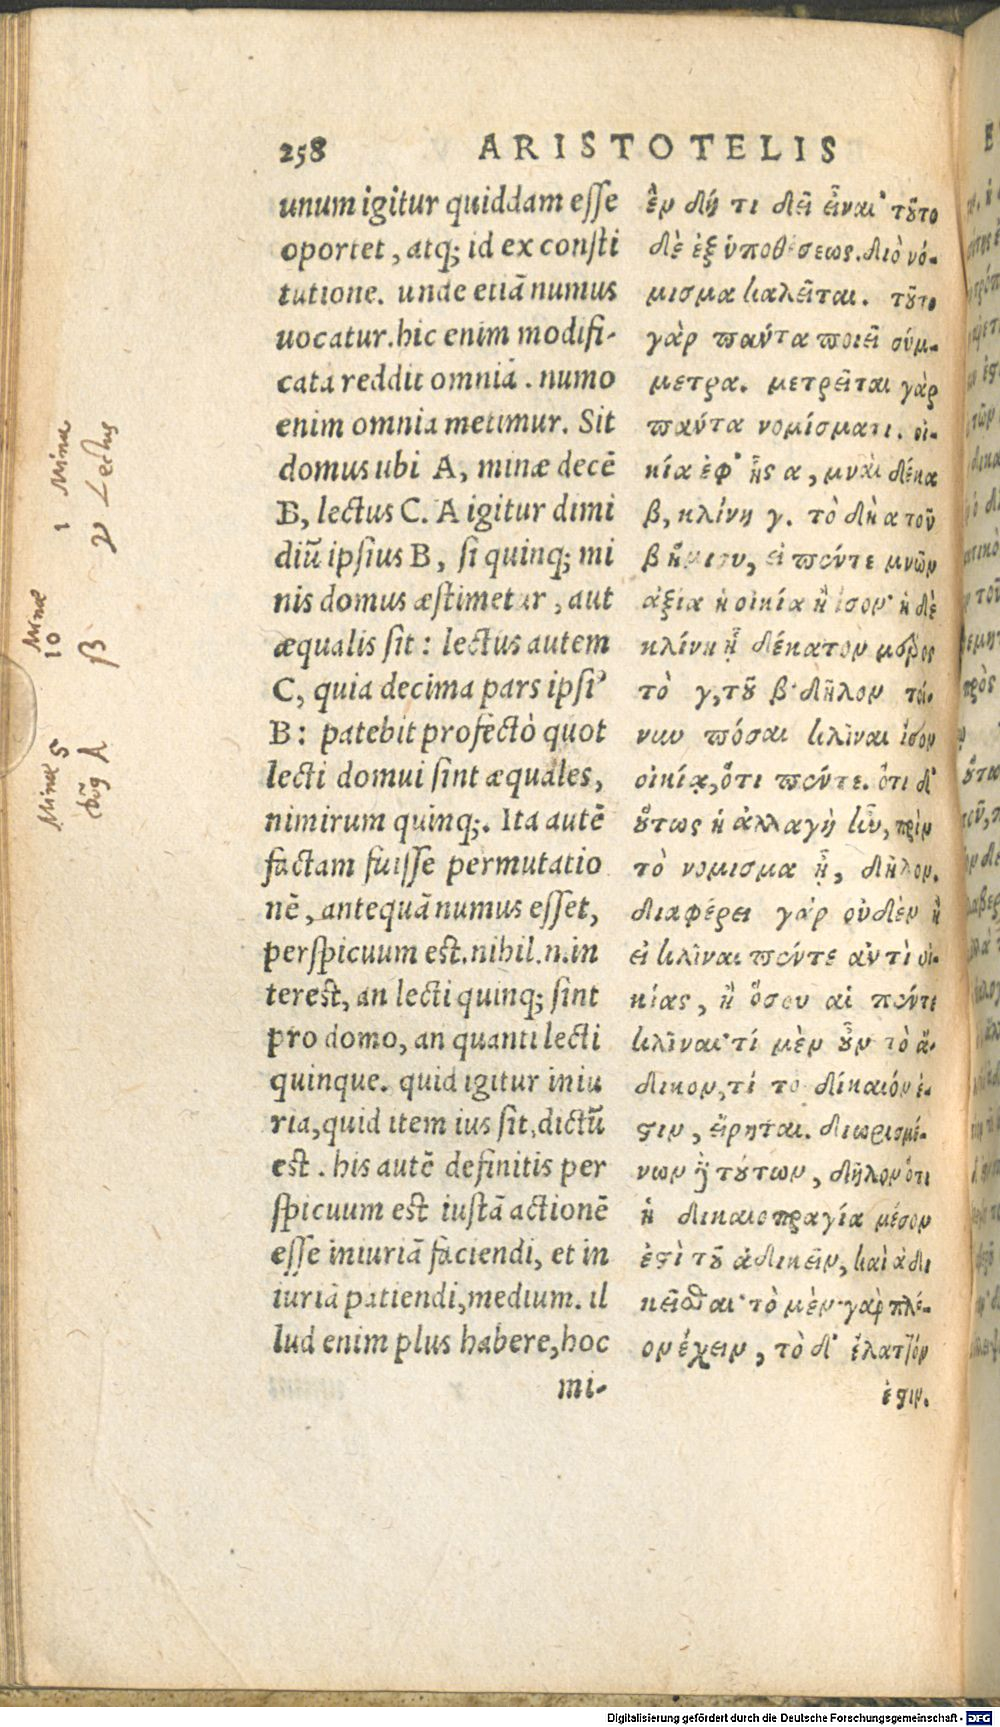 258 ARISTOTELIS
unum igitur quiddam esse
oportet, atq; id ex consti
tutione. unde etiā numus
uocatur. hic enim modifi-
cata reddit omnia. numo
enim omnia metimur. Sit
domus ubi A, minæ decē
B, lectus C. A igitur dimi
diū ipsius B, si quinq; mi
nis domus æstimetur, aut
æqualis sit: lectus autem
C, quia decima pars ipsi⁹
B: patebit profectò quot
lecti domui sint æquales,
nimirum quinq;. Ita autē
factam fuisse permutatio
nē, antequā numus esset,
perspicuum est. nihil .n. in
terest, an lecti quinq; sint
pro domo, an quanti lecti
quinque. quid igitur iniu
ria, quid item ius sit, dictū
est. his autē definitis per
spicuum est iustā actionē
esse iniuriā faciendi, et in
iuriā patiendi, medium. il
lud enim plus habere, hoc
mi-
ἓν δή τι δεῖ εἶναι· τοῦτο
δὲ ἐξ ὑποθέσεως. διὸ νό-
μισμα καλεῖται. τοῦτο
γὰρ πάντα ποιεῖ σύμ-
μετρα. μετρεῖται γὰρ
πάντα νομίσματι. οἰ-
κία ἐφ' ἧς α, μναῖ δέκα
β, κλίνη γ. τὸ δὴ α τοῦ
β ἥμισυ, εἰ πέντε μνῶν
ἀξία ἡ οἰκία ἢ ἴσον· ἡ δὲ
κλίνη ᾖ δέκατον μέρος
τὸ γ, τοῦ β· δῆλον τοί-
νυν πόσαι κλῖναι ἴσον
οἰκίᾳ, ὅτι πέντε. ὅτι δ'
οὕτως ἡ ἀλλαγὴ ἦν, πρὶν
τὸ νομισμα ᾖ, δῆλον.
διαφέρει γὰρ οὐδὲν ἢ
εἰ κλῖναι πέντε ἀντὶ οἰ-
κίας, ἢ ὅσου αἱ πέντε
κλῖναι· τί μὲν οὖν τὸ ἄ-
δικον, τί το δίκαιόν ἐ-
στιν, εἴρηται. διωρισμέ-
νων δὲ τούτων, δῆλον ὅτι
ἡ δικαιοπραγία μέσον
ἐστὶ τοῦ ἀδικεῖν, καὶ ἀδι
κεῖσθαι· τὸ μὲν γὰρ πλέ-
ον ἔχειν, τὸ δ' ἔλαττον
ἐστιν.
1 Mina
γ Lectus
Minæ
10
β
Minæ 5
A
Digitalisierung gefördert durch die Deutsche Forschungsgemeinschaft - DFG